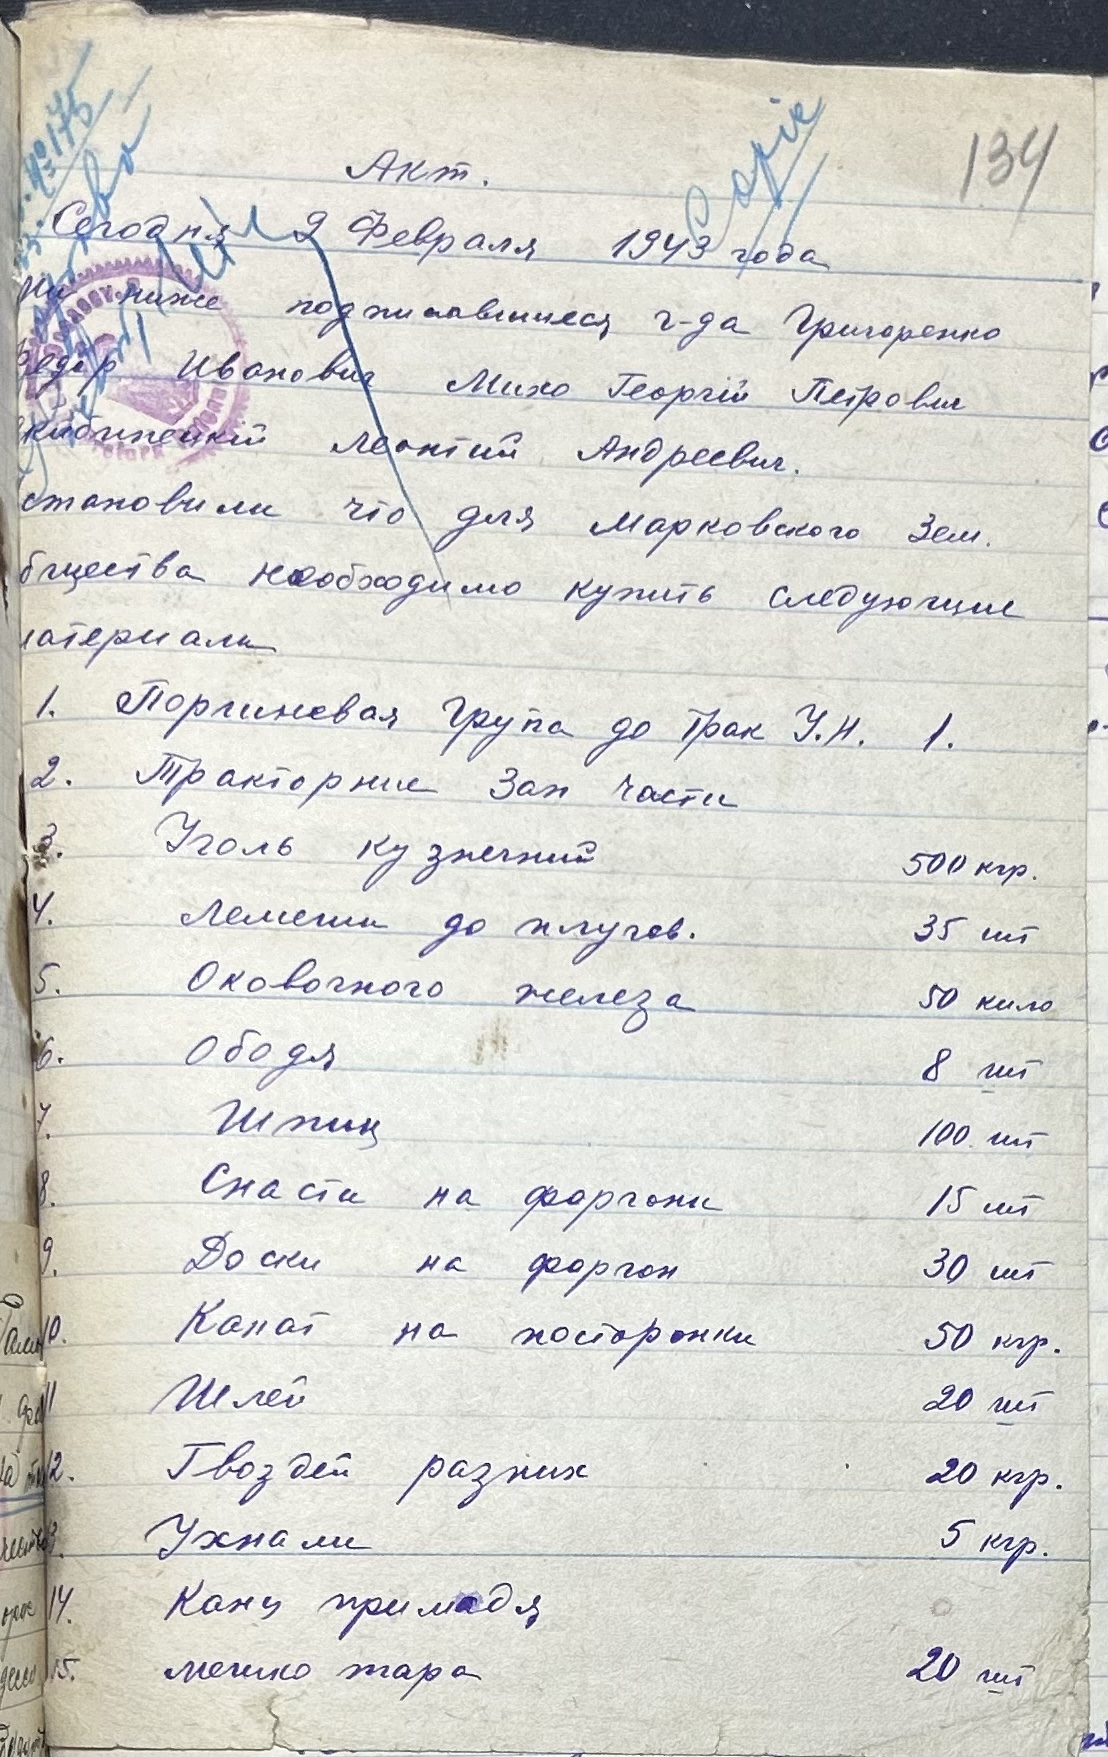 134
Copie
№ 175
Акт.
Сегодня 9 Февраля 1943 года
ниже подписавшиеся г-да Григоренко
Федор Иванович Михо Георгій Петрович
Леонтий Андреевич.
становили что для Марковского Зем.
бщества необходимо купить следующие
атериали
1. Поршневая Група до Трак У.Н. 1.
2. Тракторние Зап части
3. Уголь кузнечний 500 кгр.
4. Лемеши до плугов. 35 шт
5. Оковочного железа 50 кило
6. Ободя 8 шт
7. Шпиц 100 шт
8. Снасти на фаргони 15 шт
9. Доски на фаргон 30 шт
10. Канат на посторонки 50 кгр.
11 Шлей 20 шт
12. Гвоздей разних 20 кгр.
3. Ухнали 5 кгр.
14. Канц примадя
15. мешко тара 20 шт